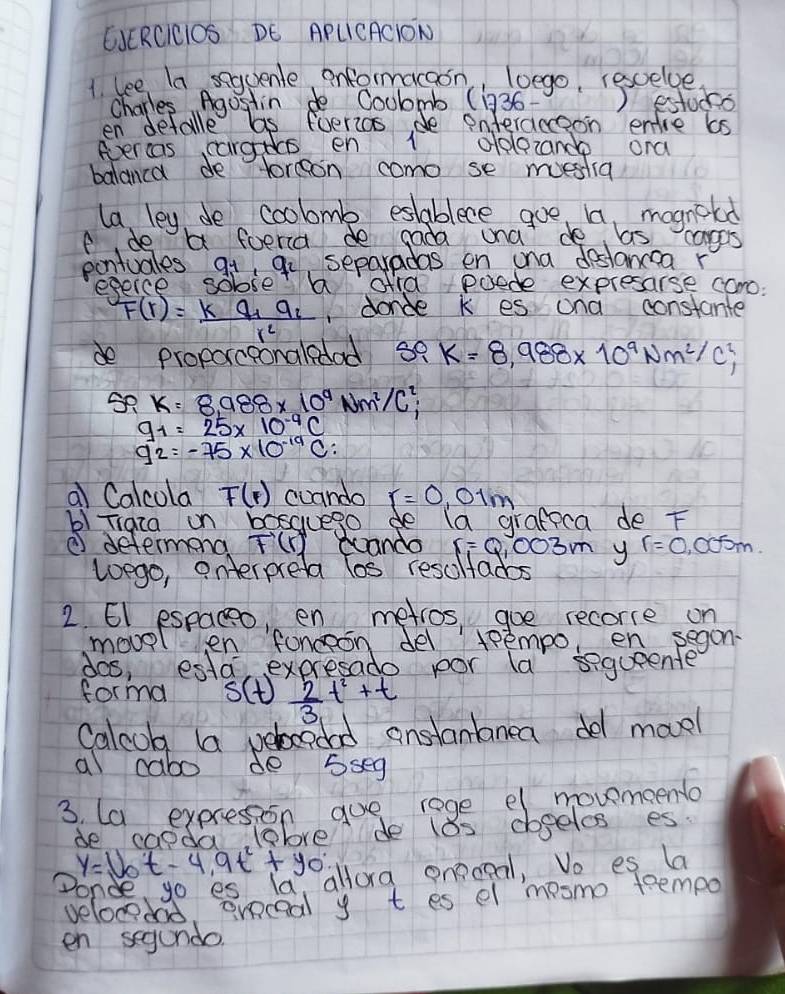 EJERCICIOS DE APLICACION
1. Lee la siguiente informacion, luego, resuelve.
Charles Agostin de Coulomb (1736- ) estudio
en detalle las fuerzas de interaccion entre las
fuercas cargadas en 1 una
balanca de torcion como se muestra
la ley de coolomb establece que la magnitud
e de la fuerza de cada una de las cargas
pontuales q1, q2 separadas en una distancia r
egerce sobre la otra puede expresarse como:
F(r) = K q1 q2 / r², donde K es una constante
de proporcionalidad si K = 8,988 x 10⁹ Nm²/C²;
si K = 8,988 x 10⁹ Nm²/C²;
q1 = 25 x 10⁻⁹ C
q2 = -75 x 10⁻¹⁹ C:
a) Calcula F(r) cuando r = 0,01m
b) Traza un bosquego de la grafica de F
c) determina F'(r) cuando r = 0,003m y r = 0,005m.
Luego, interpreta los resultados
2. El espacio, en metros, que recorre un
movil en funcion del tiempo, en segun-
dos, está expresado por la siguiente
forma S(t) 2/3 t² + t
Calcula la velocidad instantanea del movil
al cabo de 5seg
3. La expresión que rige el movimiento
de caida libre de los obgetos es:
y = V₀t - 4,9t² + y₀.
Donde yo es la altura inicial, Vo es la
velocidad inicial y t es el mismo tiempo
en segundo.